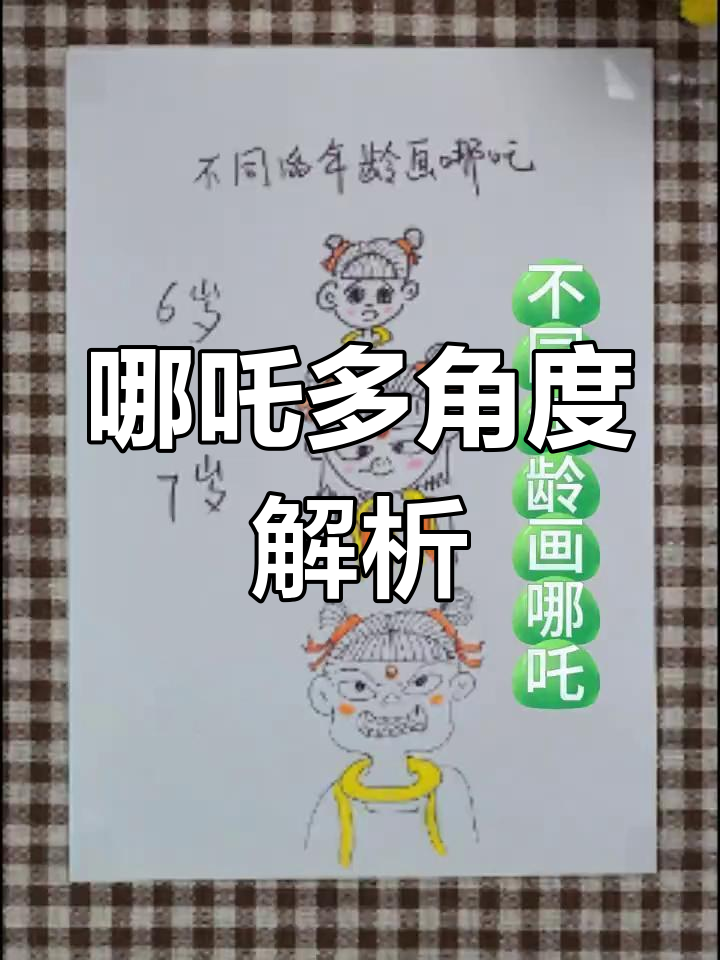 不同的年龄画哪吒
6岁
哪吒多角度
解析
7岁
不同
龄画哪吒